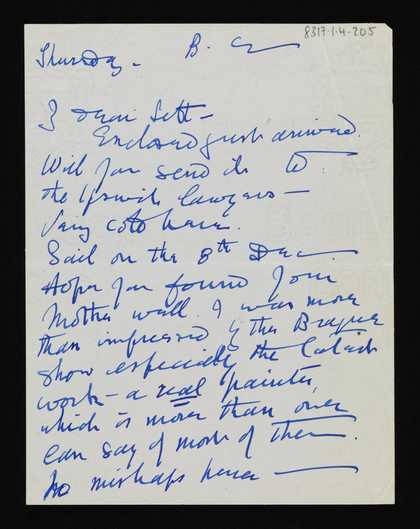 8317.1.4.205
Thursday - B. C
dear Sett -
Enclosed just arrived.
Will you send it to
the Ipswich lawyers -
Very cold here.
Sail on the 8th Dec
Hope you found your
Mother well. I was more
than impressed by the Braque
show especially the latish
work - a real painter,
which is more than one
can say of most of them.
No mishaps here